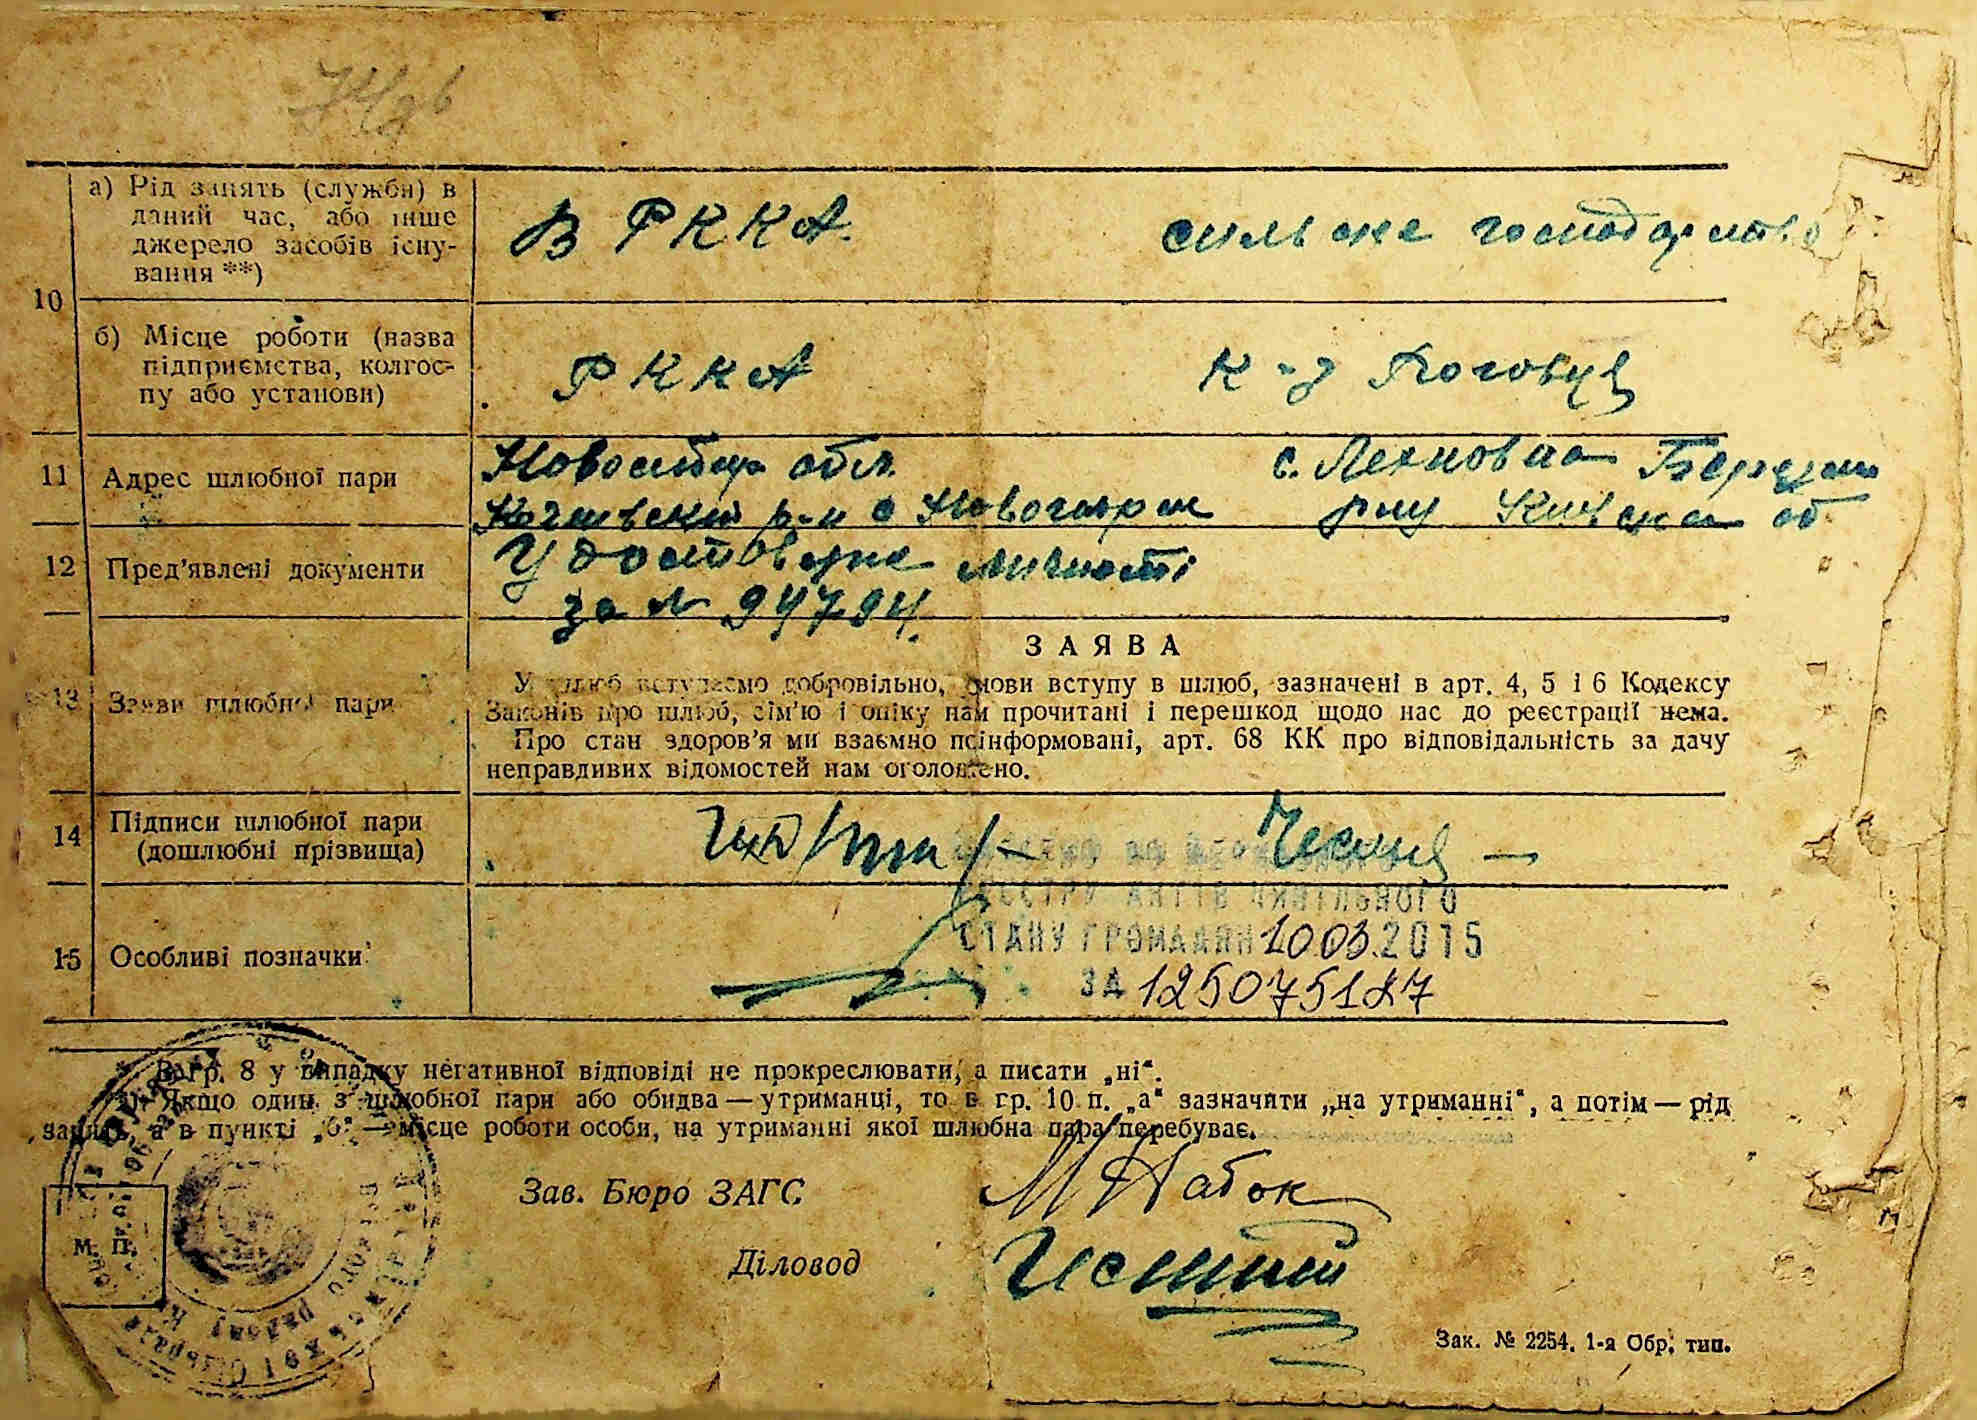 а) Рід занять (служби) в
даний час, або інше
джерело засобів існу-
вання **)
В РККА.
сильске господарство
10
б) Місце роботи (назва
підприємства, колгос-
пу або установи)
РККА
к-з
11
Адрес шлюбної пари
Новосибир обл.
р-н с
с. Лехновка Березан
р-ну Київска об
12
Пред'явлені документи
Удостовере личности
за № 94794.
13
Заяви шлюбної пари
ЗАЯВА
У шлюб вступаємо добровільно, умови вступу в шлюб, зазначені в арт. 4, 5 і 6 Кодексу
Законів про шлюб, сім'ю і опіку нам прочитані і перешкод щодо нас до реєстрації нема.
Про стан здоров'я ми взаємно поінформовані, арт. 68 КК про відповідальність за дачу
неправдивих відомостей нам оголошено.
14
Підписи шлюбної пари
(дошлюбні прізвища)
РЕЄСТРУ АКТІВ ЦИВІЛЬНОГО
СТАНУ ГРОМАДЯН 10.03.2015
ЗА 1250075127
15
Особливі позначки
В гр. 8 у випадку негативної відповіді не прокреслювати, а писати „ні“.
Якщо один з шлюбної пари або обидва — утриманці, то в гр. 10 п. „а“ зазначити „на утриманні“, а потім — рід
занять, а в пункті „б“ — місце роботи особи, на утриманні якої шлюбна пара перебуває.
Зав. Бюро ЗАГС
М Набок
Діловод
М. П.
Зак. № 2254. 1-а Обр. тип.